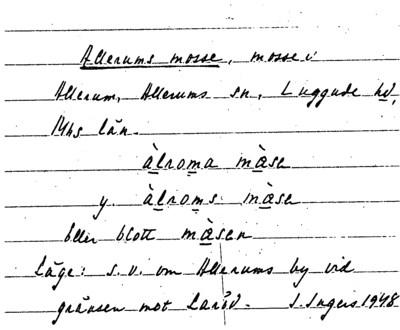 Allerums mosse, mosse i
Allerum, Allerums sn, Luggude hd,
Mhs län.
àlroma màse
y. àlroms màse
eller blott màsen
Läge: s.v. om Allerums by vid
gränsen mot Laröd. I. Ingers 1948